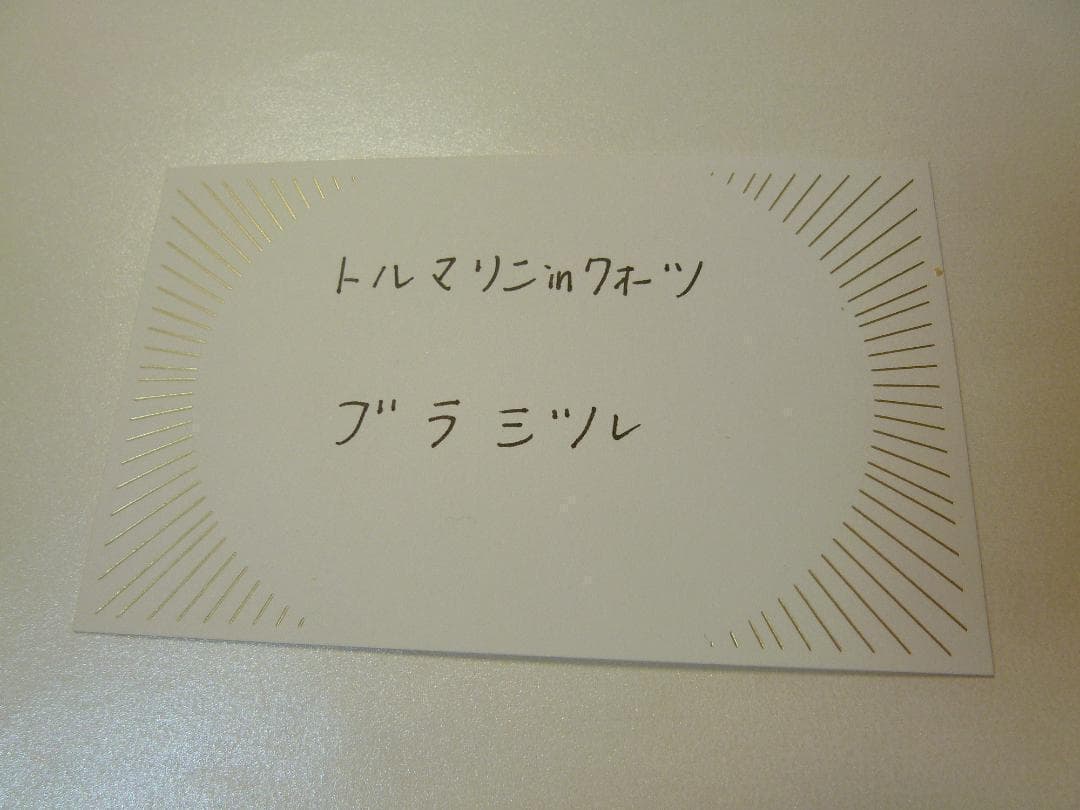 トルマリンinクォーツ
ブラジル